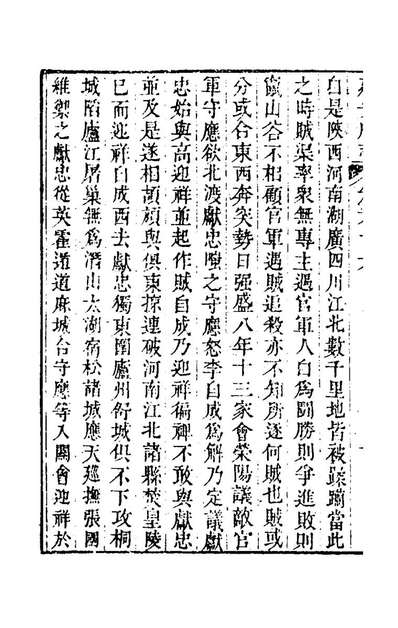 自是陝西河南湖廣四川江北數千里地皆被蹂躪當此
之時賊渠率衆無專主遇官軍人自爲鬬勝則爭進敗則
竄山谷不相顧官軍遇賊追殺亦不知所逐何賊也賊或
分或合東西奔突勢日强盛八年十三家會滎陽議敵官
軍守應欲北渡獻忠嗤之守應怒李自成爲解乃定議獻
忠始與高迎祥並起作賊自成乃迎祥偏裨不敢與獻忠
並及是遂相頡頏與俱東掠連破河南江北諸縣焚皇陵
已而迎祥自成西去獻忠獨東圍廬州舒城俱不下攻桐
城陷廬江屠巢無爲潛山太湖宿松諸城應天巡撫張國
維禦之獻忠從英霍遁道麻城合守應等入關會迎祥於